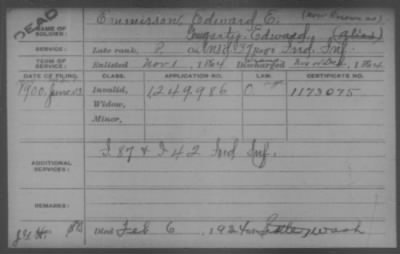 DEAD
NAME OF SOLDIER: Emmisson Edward E. (now known as)
Edward, (alias)
SERVICE: Late rank, P Co. 37 Reg't Ind. Inf.
TERM OF SERVICE: Enlisted Nov 1, 1864 Discharged , 1864
DATE OF FILING. CLASS. APPLICATION NO. LAW. CERTIFICATE NO.
1900, June Invalid, 1249986 1173075
Widow,
Minor,
ADDITIONAL SERVICES: I 87 & F 42 Ind Inf.
REMARKS:
Died Feb 6, 1924 Wash